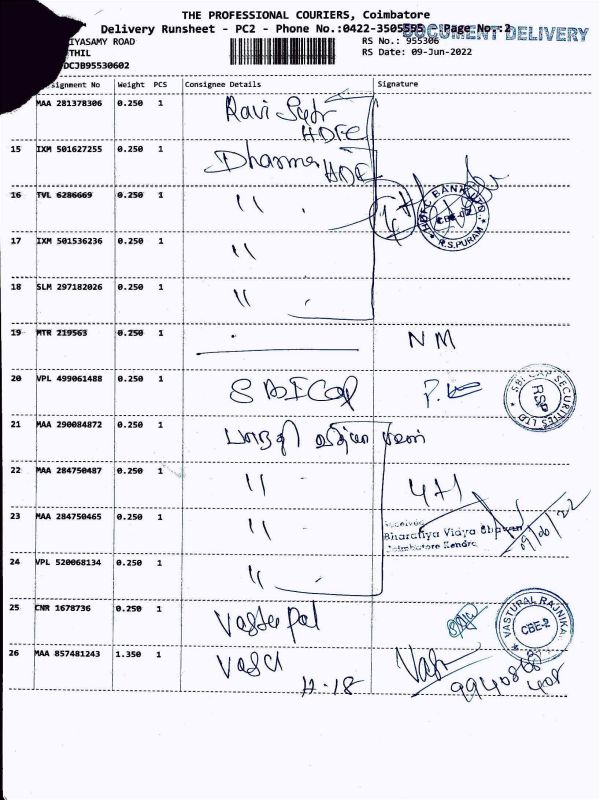 THE PROFESSIONAL COURIERS, Coimbatore
Delivery Runsheet - PC2 - Phone No.:0422-3505595 Page No.:2
DOCUMENT DELIVERY
IYASAMY ROAD RS No.: 955306
THIL RS Date: 09-Jun-2022
DCJB95530602
signment No Weight PCS Consignee Details Signature
MAA 281378306 0.250 1 Ravi
HDFC
15 IXM 501627255 0.250 1 Dharma HDF
16 TVL 6286669 0.250 1 "
HDFC BANK LTD. CBE-02 R.S.PURAM
17 IXM 501536236 0.250 1 "
18 SLM 297182026 0.250 1 "
19 MTR 219563 0.250 1 NM
20 VPL 499061488 0.250 1 SBICap
SBI CAP SECURITIES LTD RSP
21 MAA 290084872 0.250 1 பாரதி வித்யா பவன்
22 MAA 284750487 0.250 1 " 4+1
23 MAA 284750465 0.250 1 "
Received
Bharatiya Vidya Bhavan
Coimbatore Kendra
24 VPL 520068134 0.250 1 "
25 CNR 1678736 0.250 1 Vastupal
VASTUPAL RAJNIKA CBE-2
26 MAA 857481243 1.350 1 Vasu
H-18